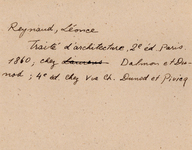 Reynaud, Léonce
Traité d'architecture, 2e éd. Paris
1860, chez Dalmon et Du-
nod; 4e éd. chez Vve Ch. Dunod et P. Vicq